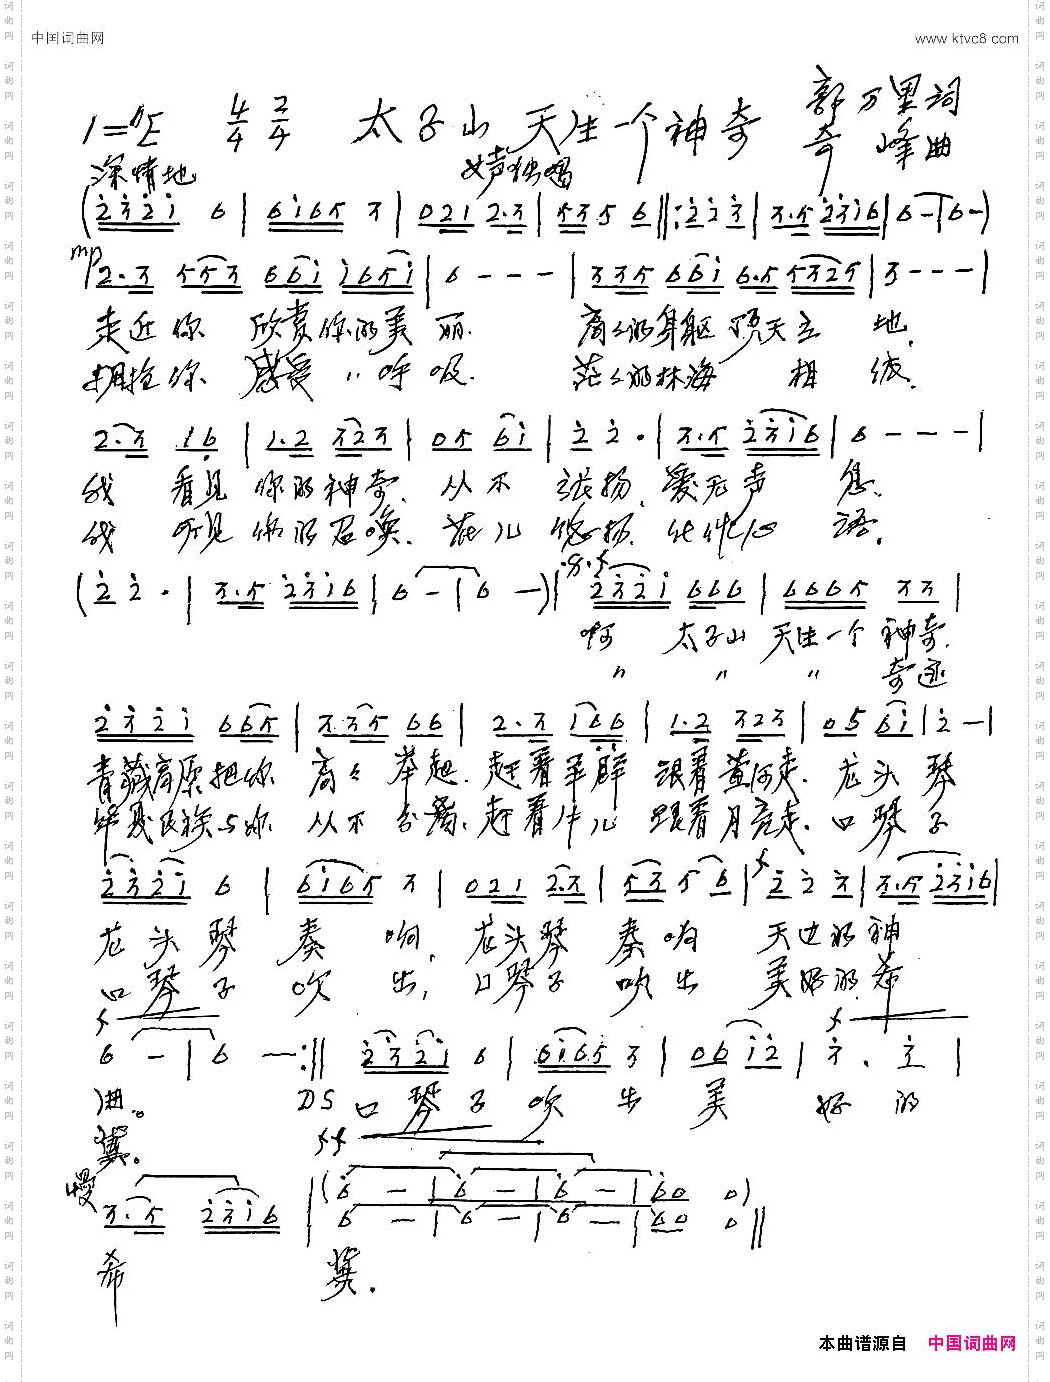 中国词曲网 www.ktvc8.com
1=♭E 4/4 2/4 太子山天生一个神奇 郭万里词
奇峰曲
深情地 女声独唱
(2321 6 | 6165 3 | 021 2·3 | 535 6 ‖: 223 | 3·5 2316 | 6 - | 6 -)
mp 2·3 553 661 1651 | 6 - - - | 335 661 6·5 5325 | 3 - - - |
走近你 欣赏你的美丽. 高々的身躯顶天立地,
拥抱你 感受〃呼吸. 茫々的林海相依.
2·3 16 | 1·2 323 | 05 61 | 2 2· | 3·5 2316 | 6 - - - |
我看见你的神奇. 从不张扬, 爱无声息.
我听见你的召唤. 花儿悠扬.
(2 2· | 3·5 2316 | 6 - | 6 -) | 2321 666 | 6665 33 |
啊 太子山 天生一个神奇.
〃 〃 〃 奇迹
2321 665 | 3·35 66 | 2·3 166 | 1·2 323 | 05 61 | 2 - |
青藏高原把你高々举起. 赶着羊群跟着黄河走. 龙头琴
华夏民族与你从不分离; 赶着牛儿跟着月亮走. 口琴子
2321 6 | 6165 3 | 021 2·3 | 535 6 | f 2 2 3 | 3·5 2316 |
龙头琴奏响, 龙头琴奏响 天边的神
口琴子吹出, 口琴子吹出 美好的希
f f
6 - | 6 - :‖ 2321 6 | 6165 3 | 06 12 | 3 · 3 |
曲。 DS 口琴子吹出美好的
冀. ff
慢 3·5 2316 | (6 - | 6 - | 6 - | 60 0)
6 - | 6 - | 6 - | 60 0 ‖
希 冀.
本曲谱源自 中国词曲网